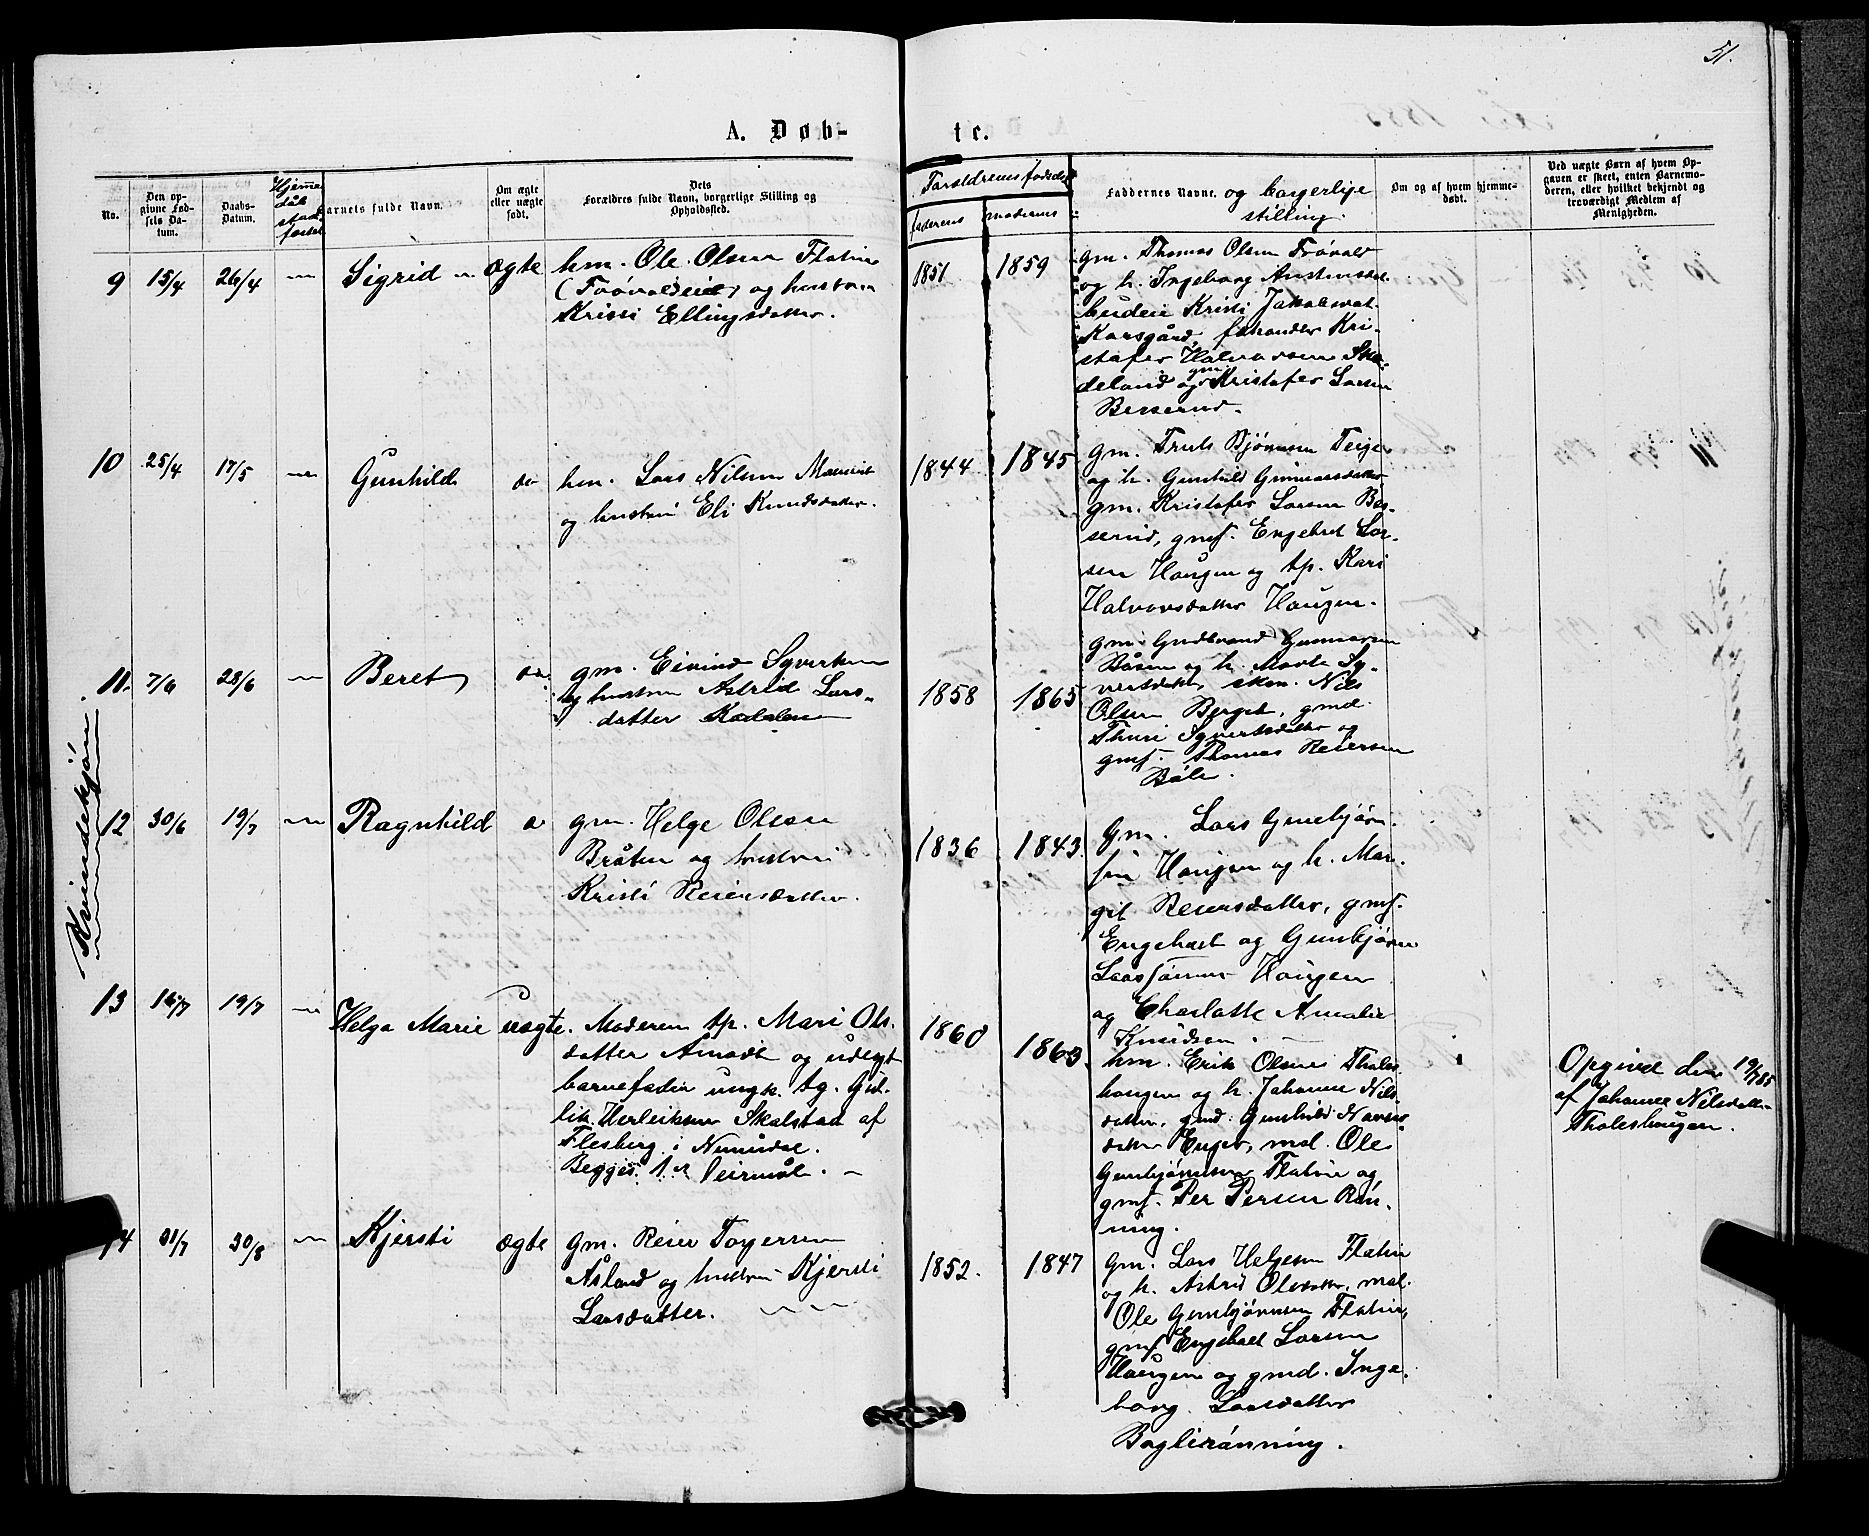 51.
A. Døb-
te.
No.
Den op-
givne Fød-
sels Da-
tum.
Daabs-
Datum.
Hjemme
dåb
stad
fæstet
Barnets fulde Navn.
Om ægte
eller uægte
født.
Dets
Forældres fulde Navn, borgerlige Stilling og
Opholdssted.
Forældrenes fødselsår
faderens
moderens
Faddernes Navne. og borgerlige
stilling.
Om og af hvem hjemme-
døbt.
Ved uægte Børn af hvem Op-
gaven er skeet, enten Barnemo-
deren, eller hvilket bekjendt og
troværdigt Medlem af
Menigheden.
Kvindekjøn.
9 15/4 26/4 — Sigrid ægte
hm. Ole Olsen Flatin
og hustru
Kristi Ellingsdatter.
1851 1859
gm. Thomas Olsen
og h. Ingeborg
budeie Kristi
Karsgård, Kri-
stofer Halvorsen Ska-
deland og gm Kristofer Larsen
Besserud.
10 25/4 17/5 — Gunhild do
hm. Lars Nilsen
og hustru Eli Knudsdatter.
1844 1845
gm. Truls Bjørnsen Teige
og h. Gunhild Gunnarsdatter
gm. Kristofer Larsen Bes-
serud, gmf. Engebret Lar-
sen Haugen og tp. Kari
Halvorsdatter Haugen.
11. 7/6 28/6 — Beret do.
gm. Eivind Syvertsen
og hustru Astrid Lars-
datter
1858 1865
gm. Gudbrand Gunnarsen
Båsen og h. Marte Sy-
vertsdatter, Nils
Olsen Berget, gmd.
Thuri Syvertsdatter og
gmf. Thomas Reiersen
Båle.
12 30/6 19/7 — Ragnhild do
gm. Helge Olsen
Bråten og hustru
Kristi Reiersdatter.
1836 1843.
gm. Lars Gunbjørn-
sen Haugen og h. Mar-
git Reiersdatter, gmf.
Engebret og Gunbjørn
Larssønner Haugen
og Charlotte Amalie
Knudsen.
13 16/7 19/7 — Helga Marie uægte.
Moderen tp. Mari Ols-
datter Amodt og udlagt
barnefader ungk. tg. Gul-
lik Herleiksen Skalstad af
Flesberg i Numedal.
Begges 1st leiermål. —
1860 1863.
hm. Erik Olsen Thales-
haugen og h. Johanne Nils-
datter, gmd. Gunhild
datter Enger, mal. Ole
Gunbjørnsen Flatin og
gmf. Per Persen Røn-
ning.
Opgivet den 19/7 85
af Johanne Nilsdatter
Thaleshaugen.
14 31/7 30/8 — Kjersti ægte
gm. Reier Torgersen
Åsland og hustru Kjersti
Larsdatter.
1852. 1847
gm. Lars Helgesen Flatin
og h. Astrid Olsdatter, mal.
Ole Gunbjørnsen Flatin,
gmf Engebret Larsen
Haugen og gmd. Inge-
borg Larsdatter
Baglierønning.